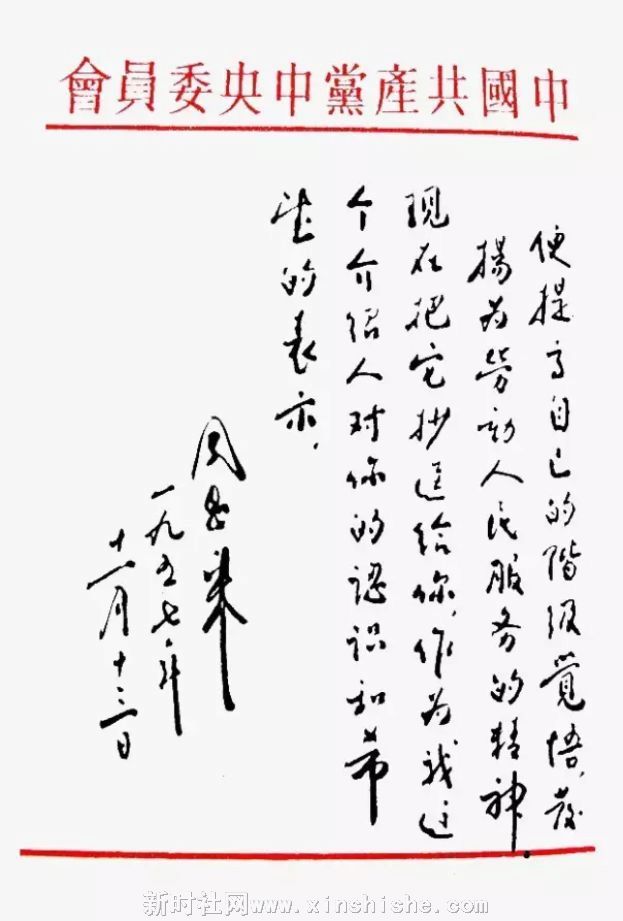 中國共產黨中央委員會
便提高自己的階级覺悟，發
揚为勞动人民服务的精神。
現在把它抄送给你，作为我这
个介绍人对你的認識和希
望的表示。
周恩来
一九五七年
十一月十三日
新时社网www.xinshishe.com